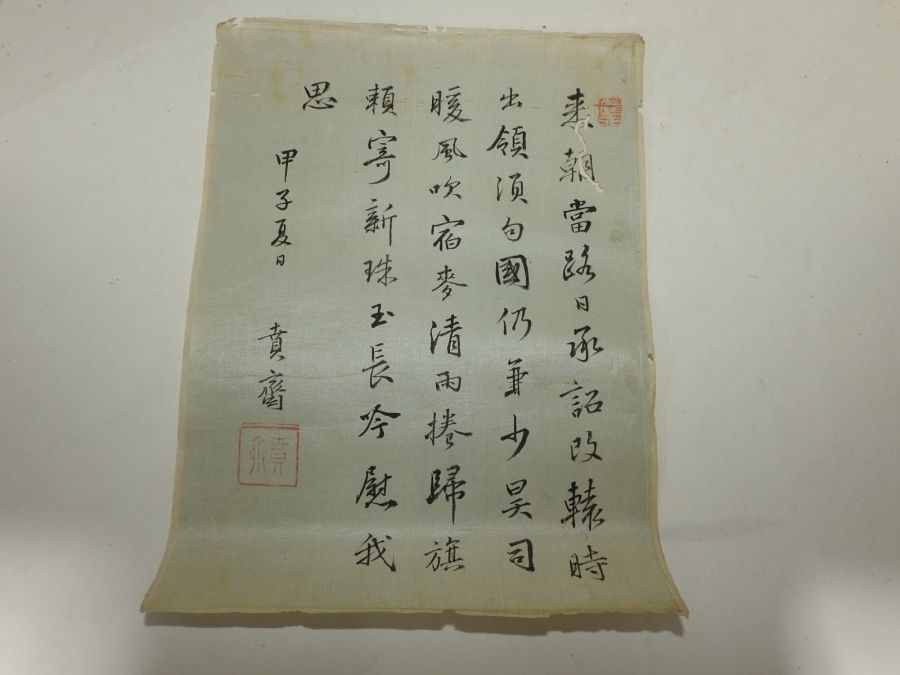 來朝當路日承詔改轅時
出領須句國仍兼少昊司
暖風吹宿麥清雨捲歸旗
賴寄新珠玉長吟慰我
思
甲子夏日
賁齋